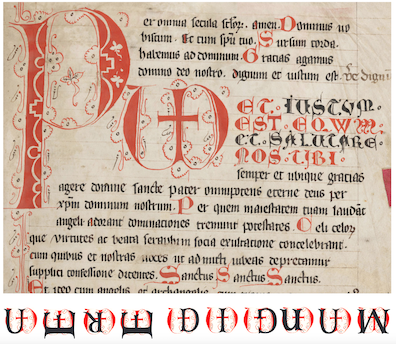 Per omnia secula sclor. amen. Dominus uo
biscum. Et cum spu tuo. Sursum corda.
habemus ad dominum. Gracias agamus
domino deo nostro. dignum et iustum est. Ve dignu
UD
ET. IUSTUM.
EST. EQUUM.
ET. SALUTARE.
NOS. TIBI.
semper et ubique gracias
agere domine sancte pater omnipotens eterne deus per
xpm dominum nostrum. Per quem maiestatem tuam laudant
angeli adorant dominationes tremunt potestates. Celi celor
que virtutes ac beata seraphin socia exultatione concelebrant.
cum quibus et nostras uoces ut admitti iubeas deprecamur
supplici confessione dicentes. Sanctus Sanctus Sanctus.
Et ideo cum angelis et archangelis cum
UERE DIGNUM